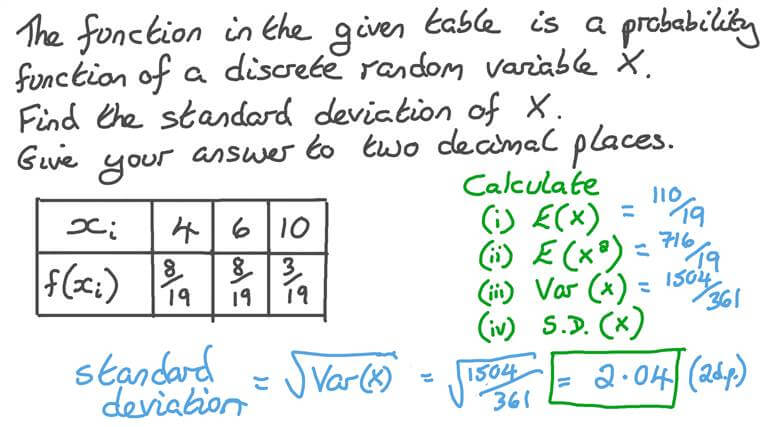 The function in the given table is a probability
function of a discrete random variable X.
Find the standard deviation of X.
Give your answer to two decimal places.
Calculate
(i) E(X) = 110/19
(ii) E(X²) = 716/19
(iii) Var(X) = 1504/361
(iv) S.D.(X)
xᵢ 4 6 10
f(xᵢ) 8/19 8/19 3/19
standard deviation = √Var(X) = √1504/361 = 2.04 (2d.p.)